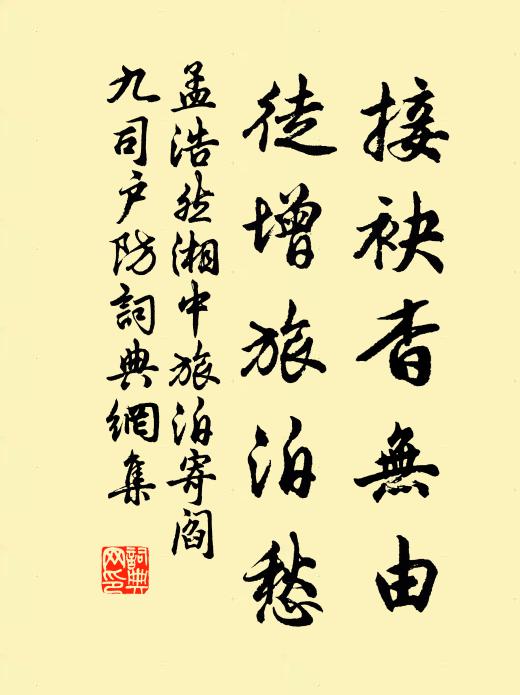 接袂杳無由
徒增旅泊愁
孟浩然湘中旅泊寄閻
九司户防詞典網集
詞典网印